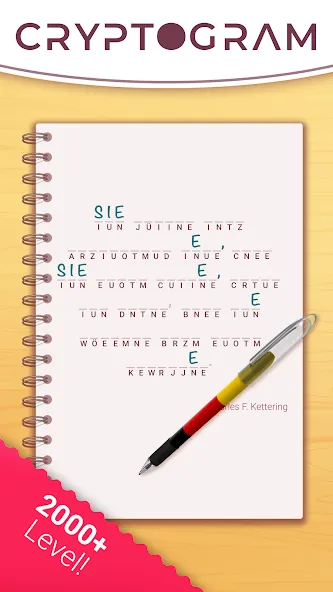 CRYPTOGRAM
SIE
IUN JÜIINE INTZ
E,
ARZIUOTMUD INUE CNEE
SIE E,
IUN EUOTM CUIINE CRTUE
E
IUN DNTNE, BNEE IUN
WÖEEMNE BRZM EUOTM
E
KEWRJJNE.
les F. Kettering
2000+
Level!